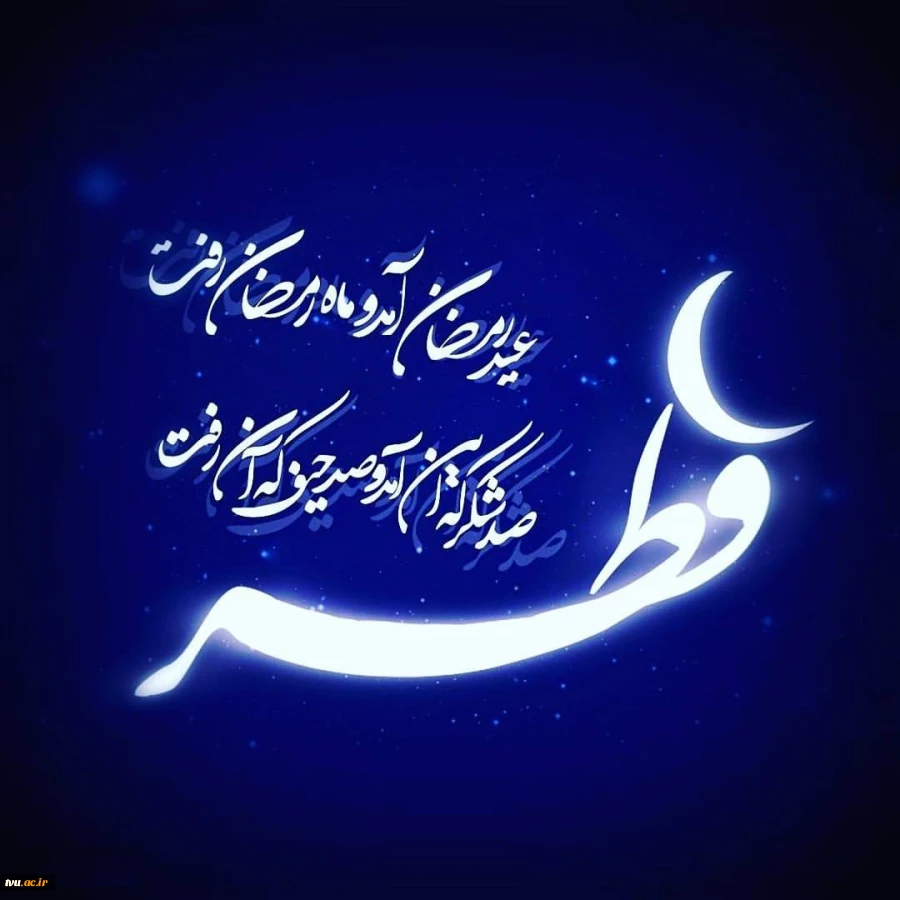 عید رمضان آمد و ماه رمضان رفت
صد شکر که این آمد و صد حیف که آن رفت
فطر
tvu.ac.ir